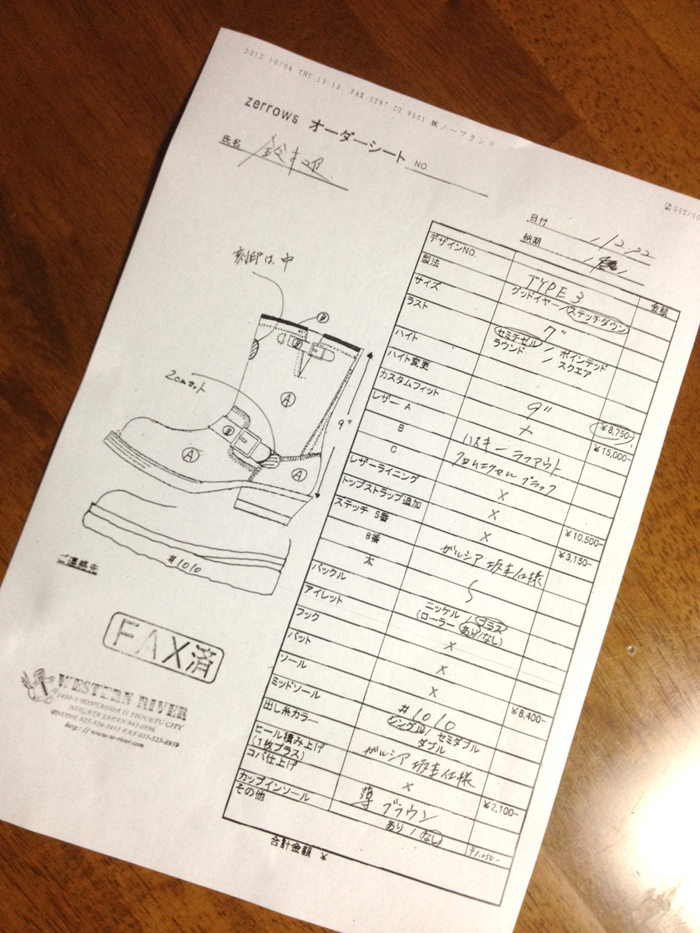 2012 10/04 THU 13:14 FAX 0297 20 9501 ㈱ノープランツ
zerrows オーダーシート NO
氏名 鈴木
日付 1/2.22
納期
刻印は中
2cmカット
9"
A
B
#1010
ご連絡先
FAX済
WESTERN RIVER
デザインNO. TYPE 3 金額
製法 グッドイヤー/ステッチダウン
サイズ 7"
ラスト セミチゼル/ポインテッド
ラウンド/スクエア
ハイト 9" ¥8,750-
ハイト変更 × ¥15,000-
カスタムフィット
レザー A ハスキー ラフアウト
B クロムエクセル ブラック
C ×
レザーライニング × ¥10,500-
トップストラップ追加 ¥3,150-
ステッチ 5番 ガルシア 班車仕様
8番
太
バックル ニッケル/ブラス
(ローラー あり/なし)
アイレット ×
フック ×
パット × ¥8,400-
ソール #1010
ミッドソール シングル/セミダブル
ダブル
出し糸カラー ガルシア 班車仕様
ヒール積み上げ × ¥2,100-
(1枚プラス)
コバ仕上げ ブラウン
カップインソール あり/なし ¥1,050-
その他
合計金額 ¥